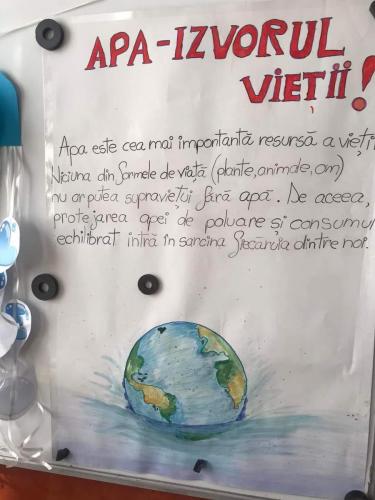 APA-IZVORUL
VIEȚII!
Apa este cea mai importantă resursă a vieți
Niciuna din formele de viață (plante, animale, om)
nu ar putea supraviețui fără apă. De aceea,
protejarea apei de poluare și consumul
echilibrat intră în sarcina fiecăruia dintre noi.